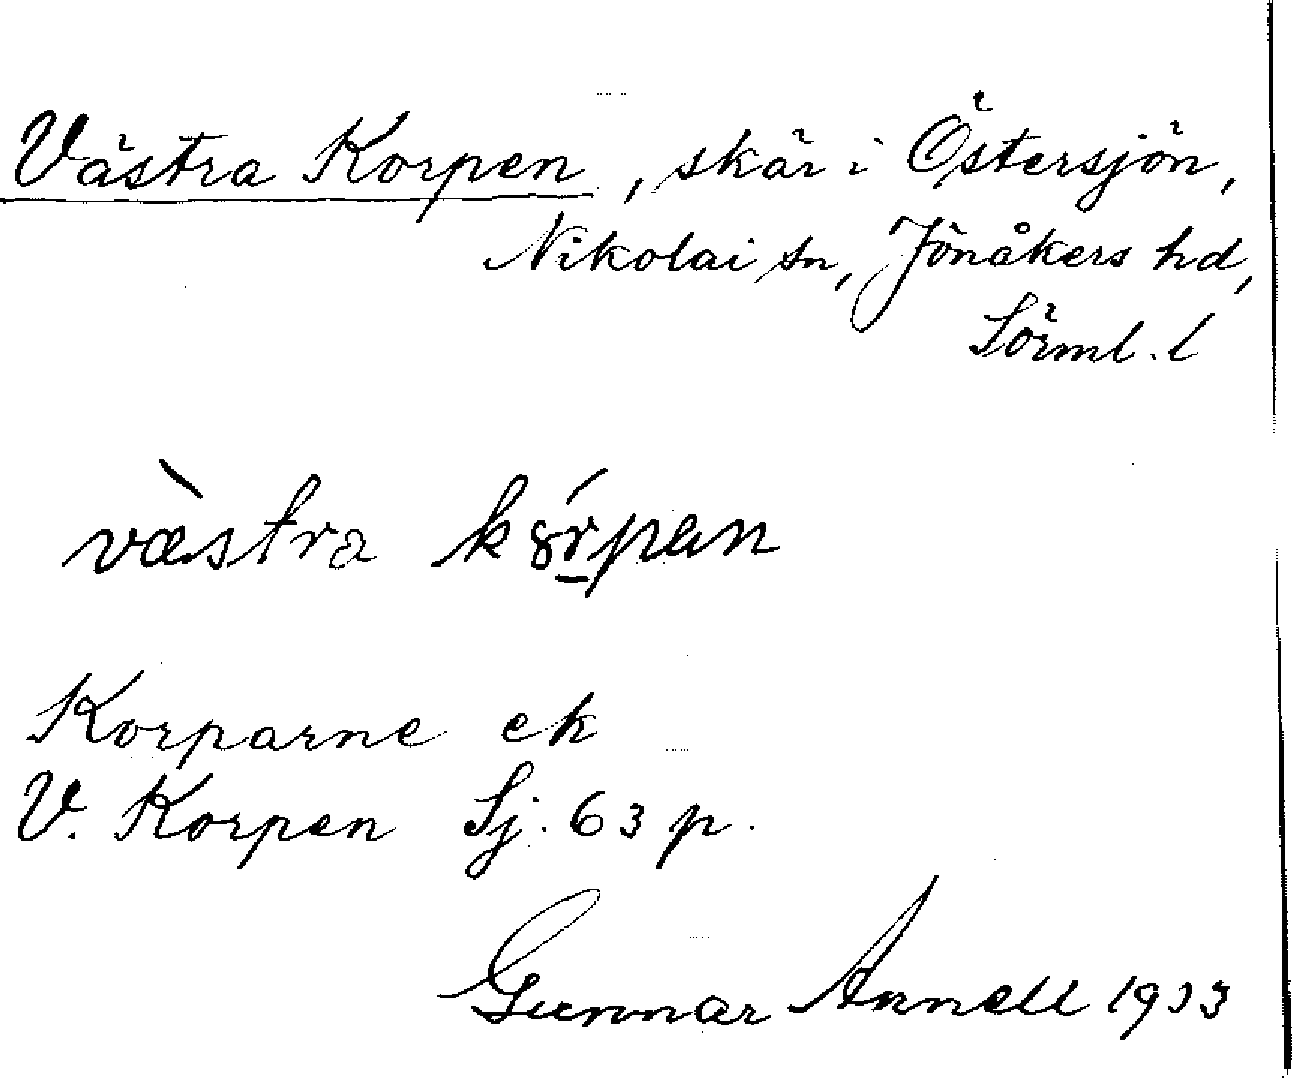 Västra Korpen, skär i Östersjön,
Nikolai sn, Jönåkers hd,
Sörml. l
væ̀stra kȣŕ̠pan
Korparne ek
V. Korpen Sj. 63 p.
Gunnar Annell 1933